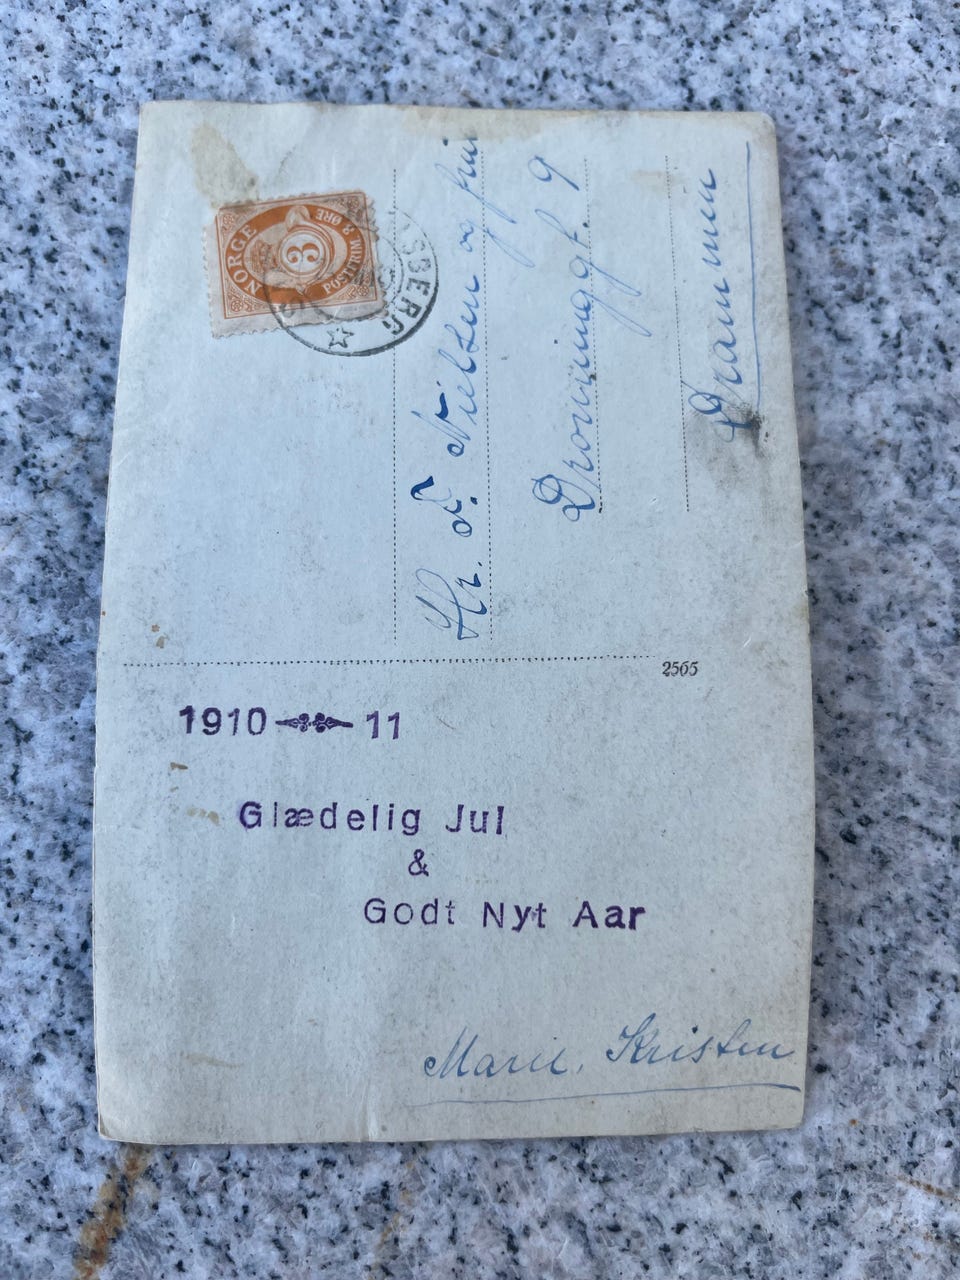 NORGE
3
POSTFRIM. 3 ØRE
SBERG
Hr. F. Nielsen og frue
Dronninggt. 9
Drammen
2565
1910 11
Glædelig Jul
&
Godt Nyt Aar
Marie, Kristen